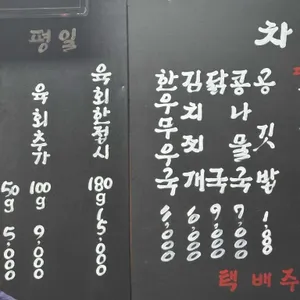 평일
육회한접시 180g 15,000
육회추가 100g 9,000
50g 5,000
차
공깃밥 1.8
콩나물국 7,000
닭국 9,000
김치찌개 6,000
한우무우국 8,000
택배주